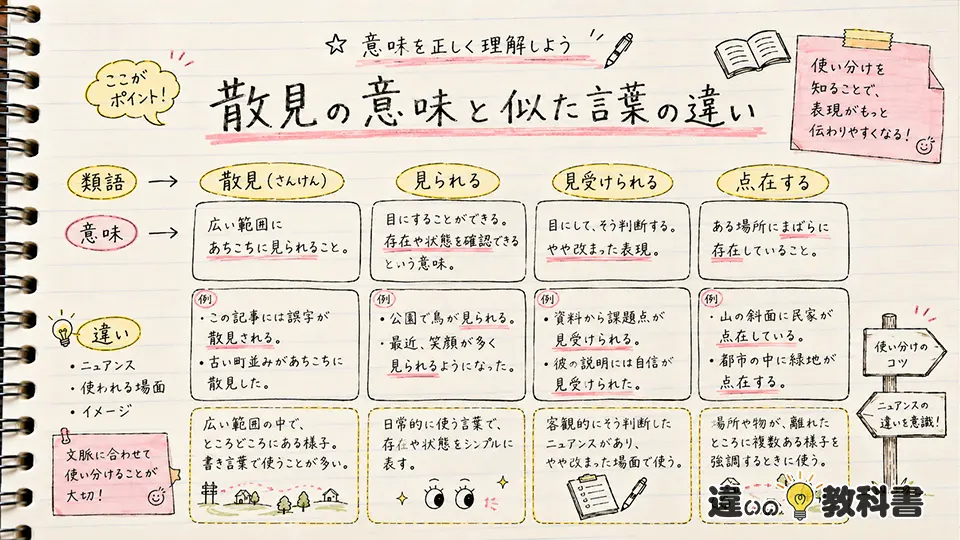 ☆ 意味を正しく理解しよう
ここが
ポイント!
散見の意味と似た言葉の違い
使い分けを
知ることで、
表現がもっと
伝わりやすくなる!
類語 → 散見(さんけん) 見られる 見受けられる 点在する
意味 →
広い範囲に
あちこちに見られること。
目にすることができる。
存在や状態を確認できる
という意味。
目にして、そう判断する。
やや改まった表現。
ある場所にまばらに
存在していること。
違い
・ニュアンス
・使われる場面
・イメージ
例
・この記事には誤字が
散見される。
・古い町並みがあちこちに
散見した。
例
・公園で鳥が見られる。
・最近、笑顔が多く
見られるようになった。
例
・資料から課題点が
見受けられる。
・彼の説明には自信が
見受けられた。
例
・山の斜面に民家が
点在している。
・都市の中に緑地が
点在する。
使い分けの
コツ
ニュアンスの
違いを意識!
文脈に合わせて
使い分けることが
大切!
広い範囲の中で、
ところどころにある様子。
書き言葉で使うことが多い。
日常的に使う言葉で、
存在や状態をシンプルに
表す。
客観的にそう判断した
ニュアンスがあり、
やや改まった場面で使う。
場所や物が、離れた
ところに複数ある様子を
強調するときに使う。
違いの教科書